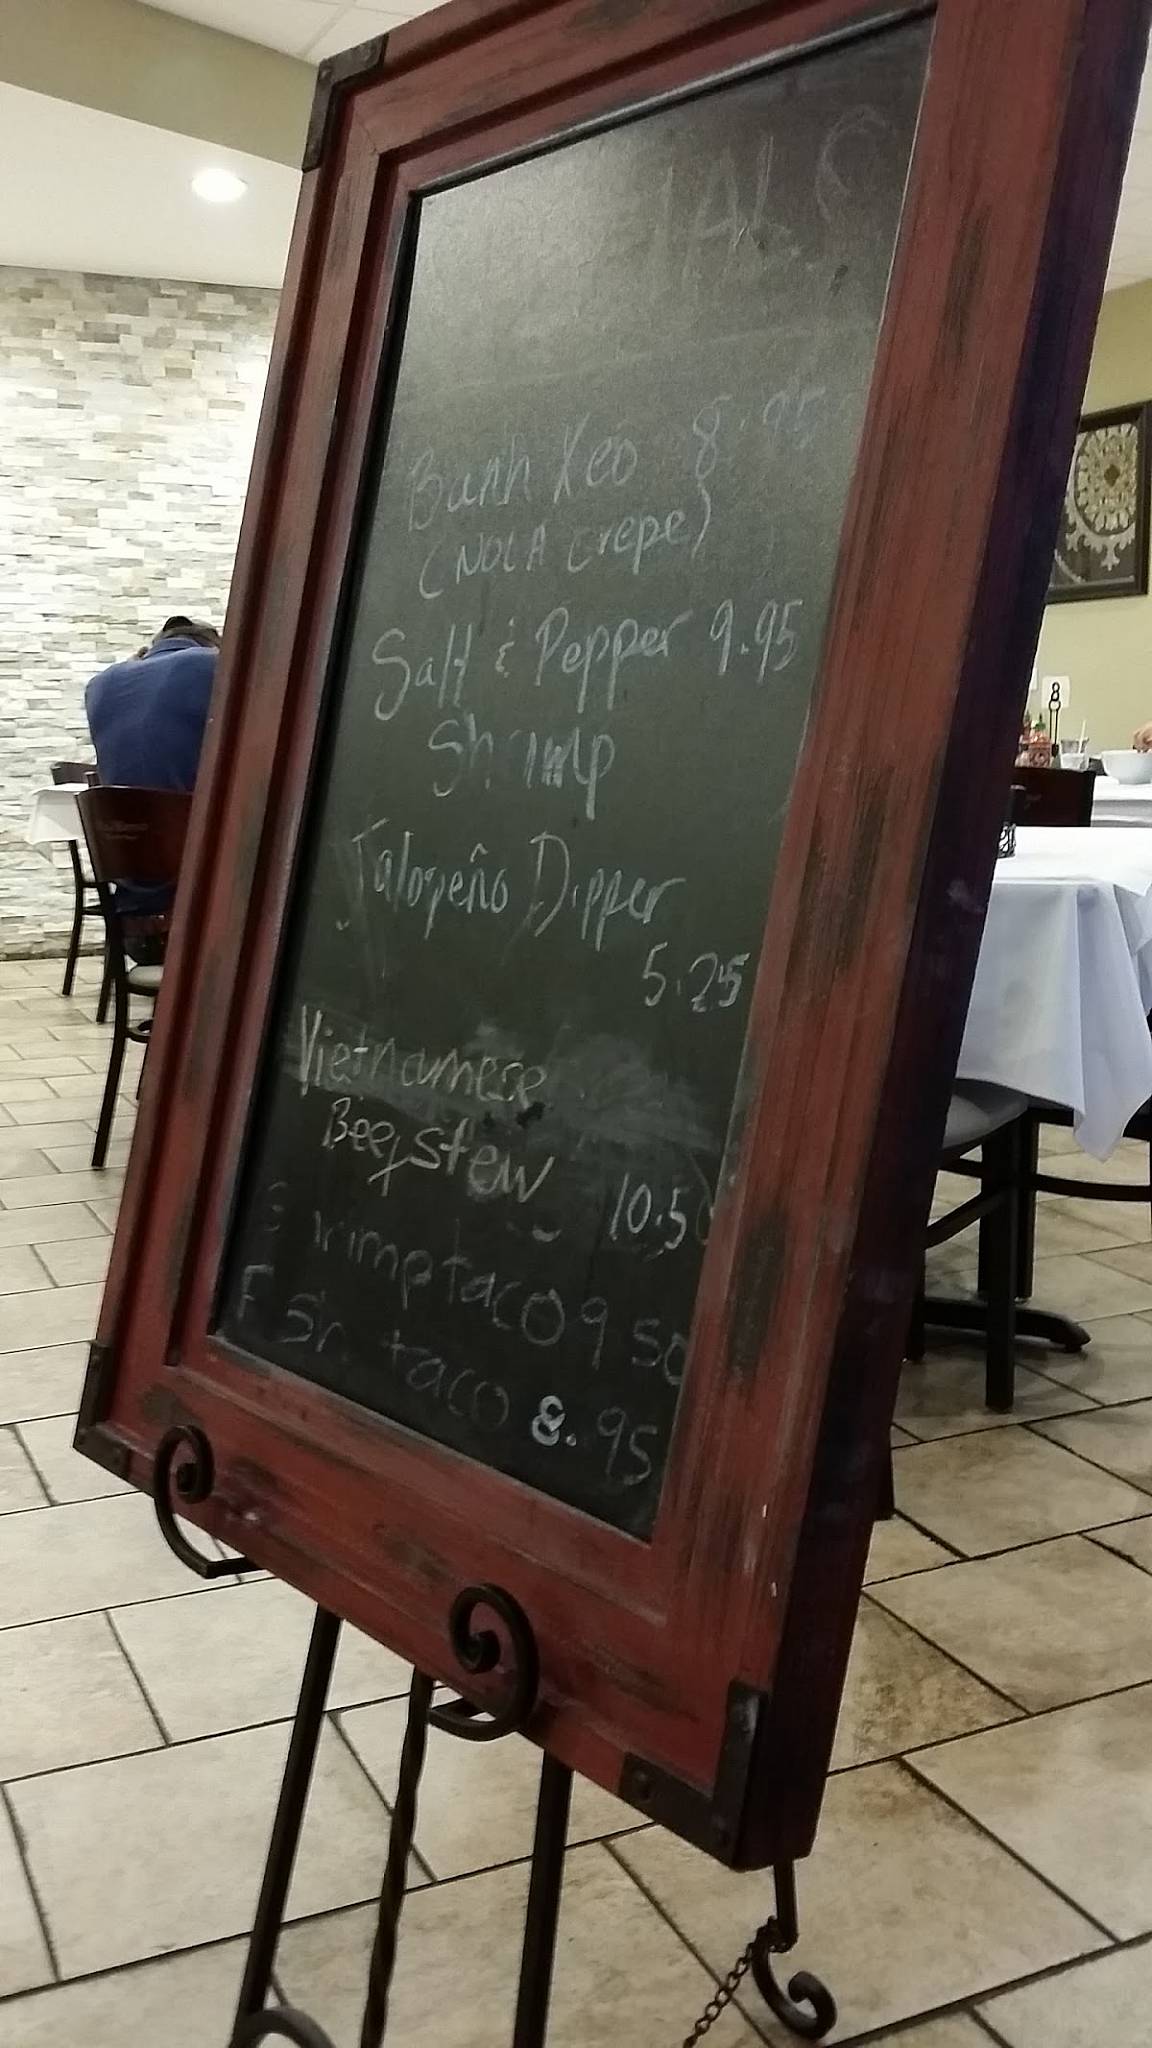 Banh Xeo 8.95
(NOLA crepe)
Salt & Pepper 9.95
Shrimp
Jalopeño Dipper
5.25
Vietnamese
Beef stew 10.50
Shrimp taco 9 50
Fish taco 8.95
8